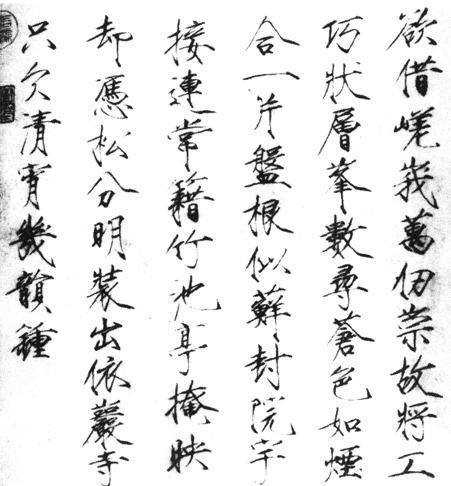 欲借嵯峨萬仞崇故將工
巧狀層峯數尋蒼色如煙
合一片盤根似蘚封院宇
接連常籍竹池亭掩映
却憑松分明裝出依巖寺
只欠清宵幾韻鍾